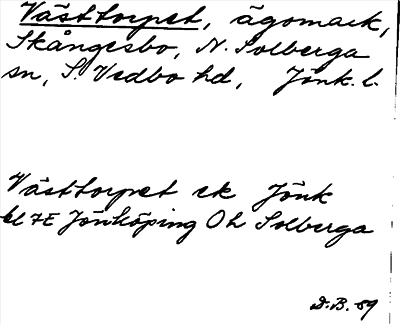 Västtorpet, ägomark,
Skångesbo, N. Solberga
sn, S. Vedbo hd, Jönk. l.
Västtorpet ek Jönk
bl 7E Jönköping Öh Solberga
D.B. 89